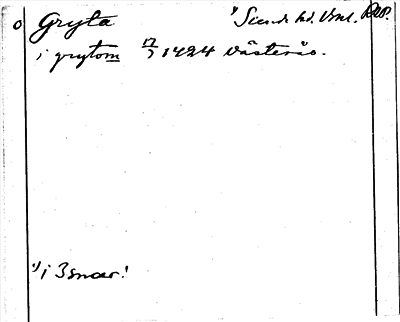 o Gryta ¹⁾ Siende hd. Vml. RAP.
i grytom 17/7 1424 Västerås.
¹⁾ i Bsnoar!